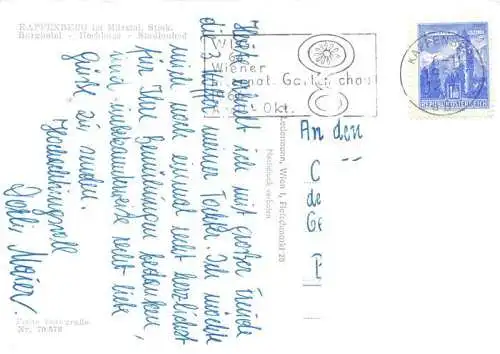 KAPFENBERG im Mürztal, Stmk.
Burghotel - Hochhaus - Stadtenbad
WIG
Wiener
Internat. Gartenschau
64
April Okt.
KAPFENBERG
REPUBLIK ÖSTERREICH
An den
Heute erhielt ich mit großer Freude
die Noten meiner Tochter. Ich möchte
mich noch einmal recht herzlichst
für Ihre Bemühungen bedanken,
und unbekannterweise recht liebe
Grüße zu senden.
Hochachtungsvoll
Maier
Wien I, Fleischmarkt 28
Nachdruck verboten
Nr.